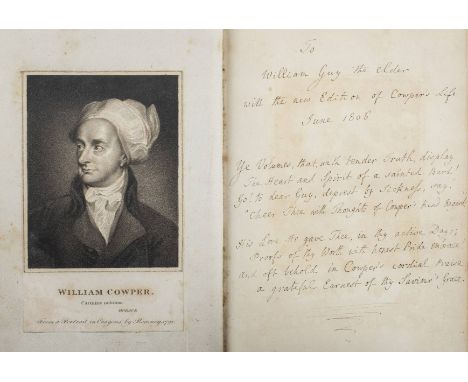 WILLIAM COWPER.
From a Portrait in Crayons by Romney, 1792.
To
William Guy the elder
with the new Edition of Cowpers Life
June 1806
Ye Volumes, that, with tender Truth, display
The Heart and Spirit of a sainted Bard!
Go! to dear Guy, deprest by Sickness, say,
"Cheer Thee with Thoughts of Cowper's kind Regard
His Love He gave Thee, in thy active Days;
Proofs of thy Worth with honest Pride
and oft behold in Cowper's cordial Praise
a grateful Earnest of thy Saviour's Grace.